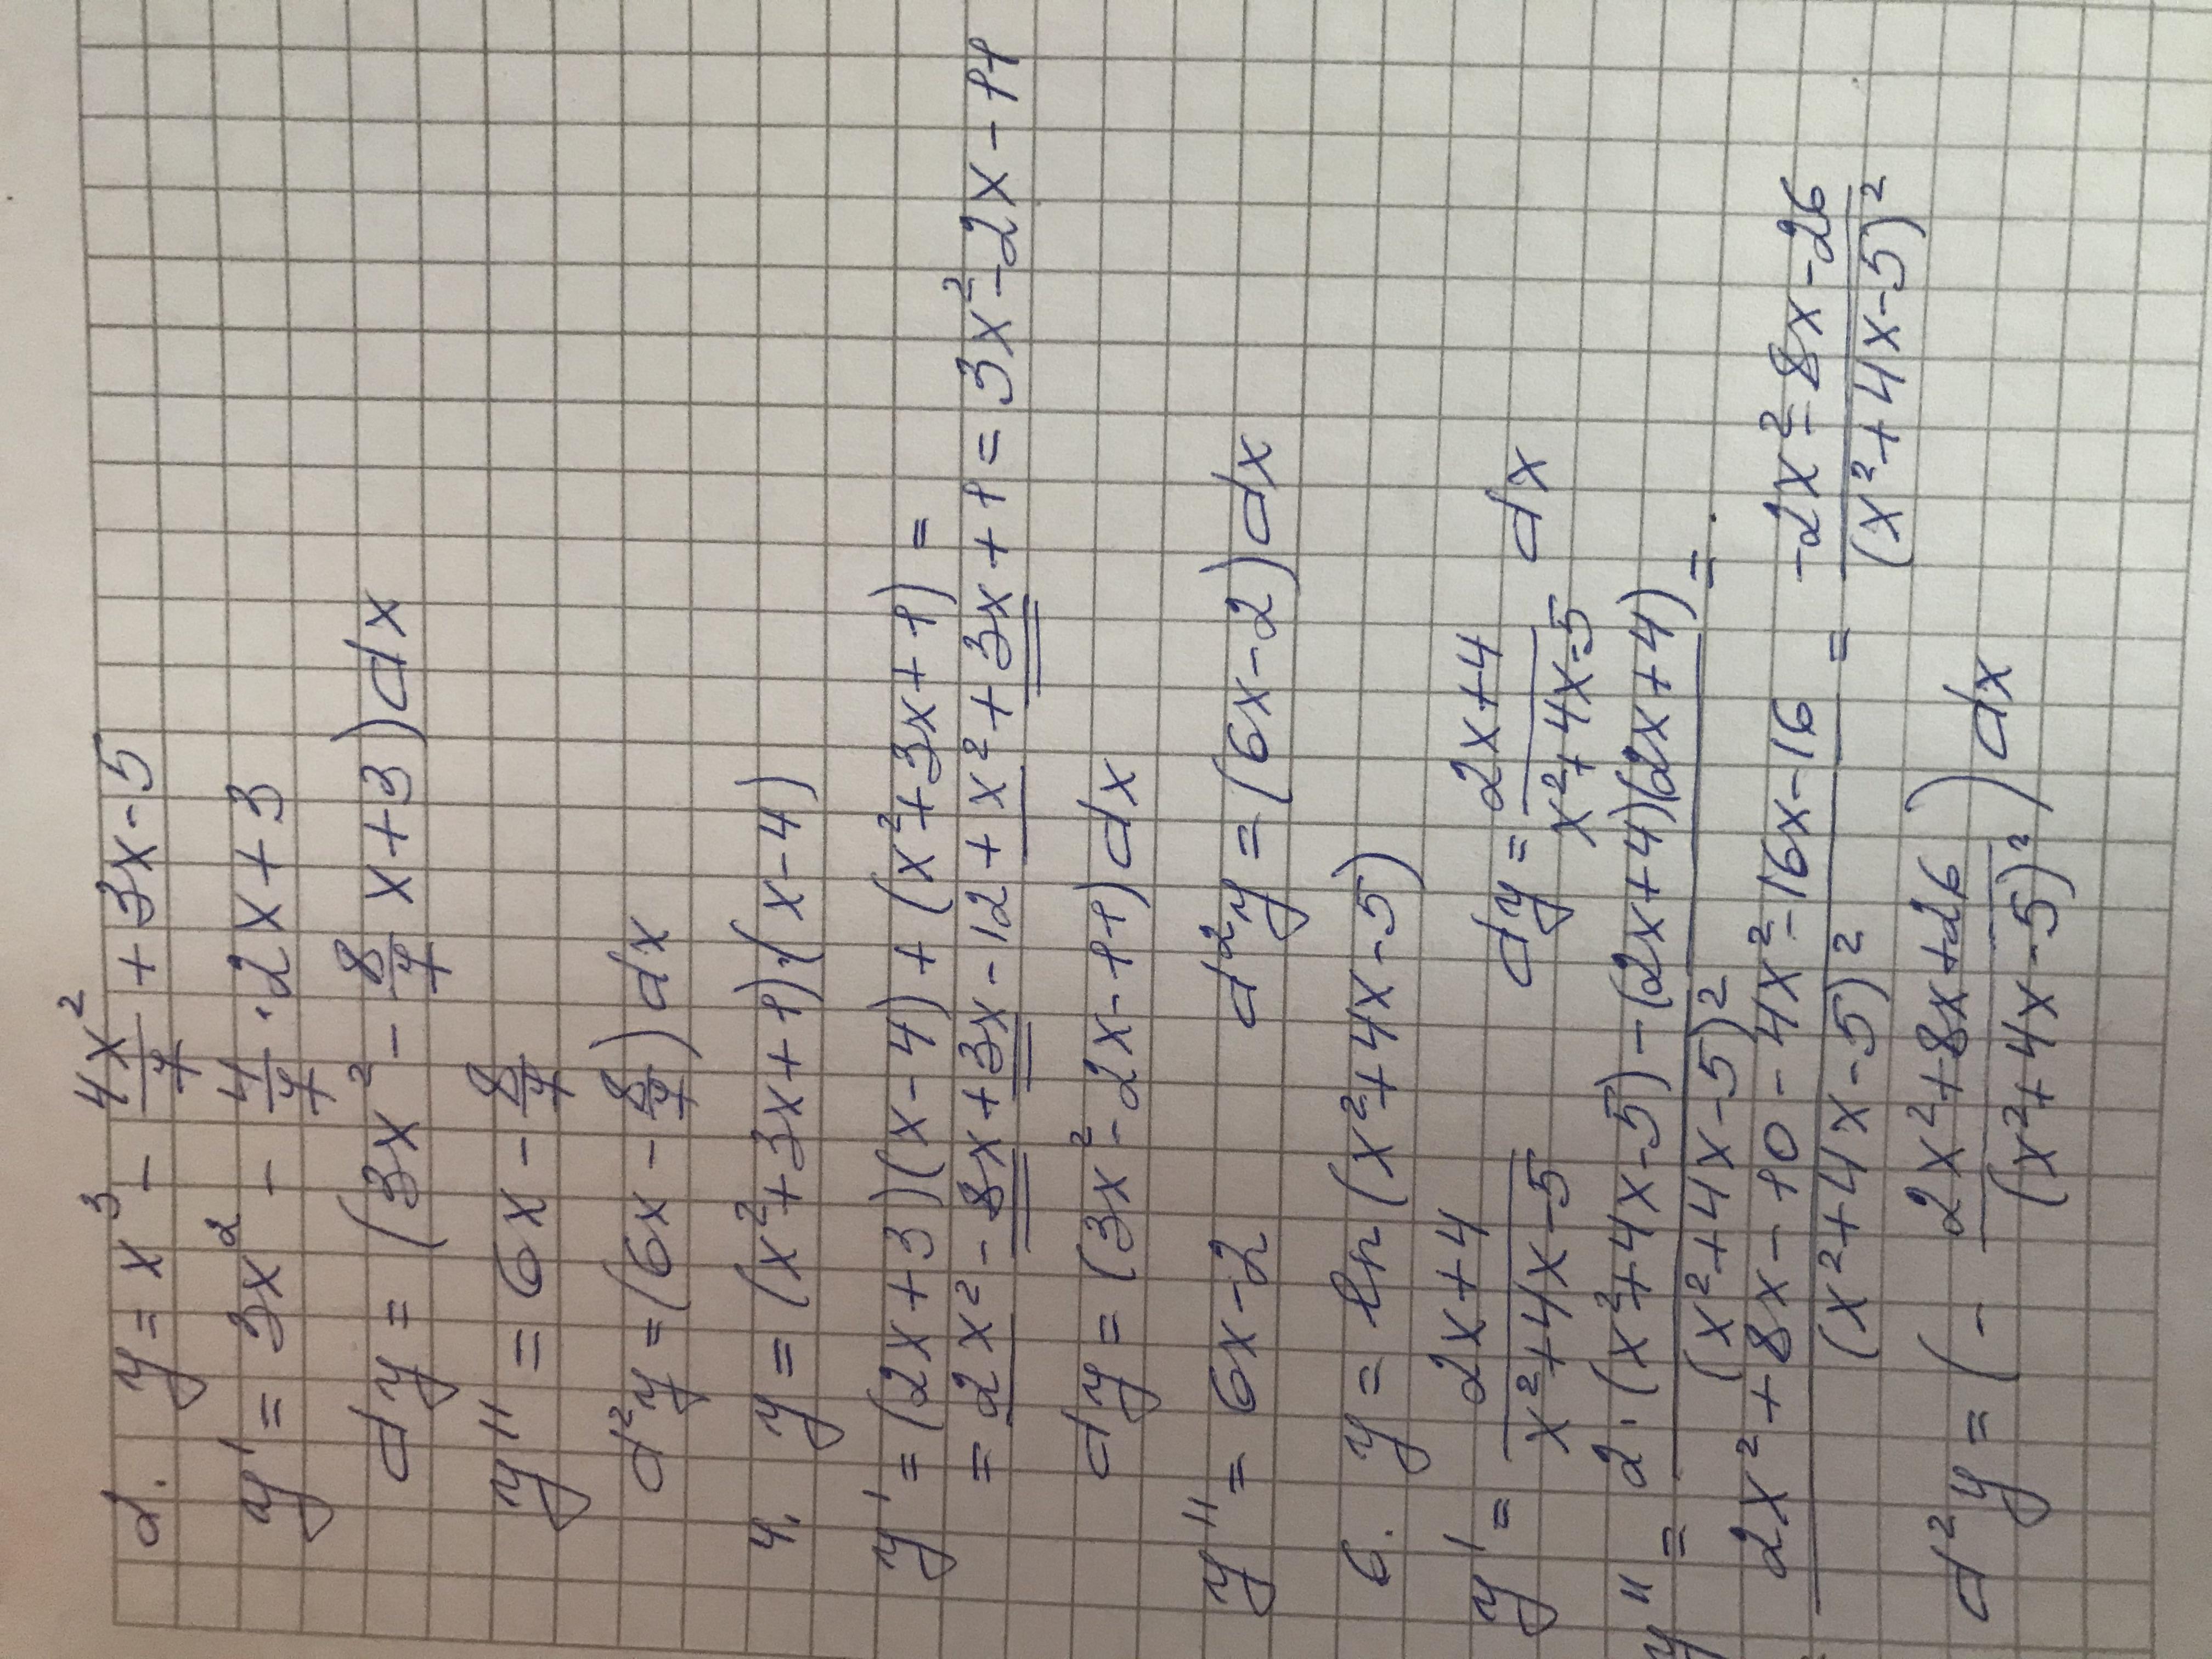 2. y = x³ - 4x²/7 + 3x - 5
y' = 3x² - 4/7 · 2x + 3
dy = (3x² - 8/7 x + 3)dx
y'' = 6x - 8/7
d²y = (6x - 8/7)dx
4. y = (x² + 3x + 1)·(x - 4)
y' = (2x + 3)(x - 4) + (x² + 3x + 1) =
= 2x² - 8x + 3x - 12 + x² + 3x + 1 = 3x² - 2x - 11
dy = (3x² - 2x - 11)dx
y'' = 6x - 2 d²y = (6x - 2)dx
6. y = ln(x² + 4x - 5)
y' = (2x + 4)/(x² + 4x - 5) dy = (2x + 4)/(x² + 4x - 5) dx
y'' = (2·(x² + 4x - 5) - (2x + 4)(2x + 4))/(x² + 4x - 5)² =
= (2x² + 8x - 10 - 4x² - 16x - 16)/(x² + 4x - 5)² = (-2x² - 8x - 26)/(x² + 4x - 5)²
d²y = (- (2x² + 8x + 26)/(x² + 4x - 5)²)dx